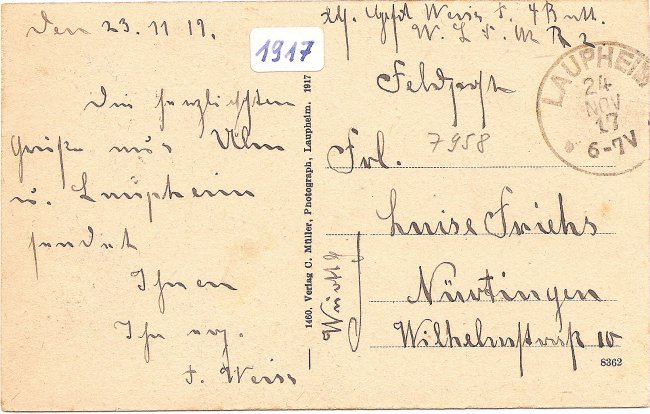 Den 23. 11 17.
1917
Gefr. Weiss F. 4 Batt.
W. L. F. A. R 2
Feldpost
LAUPHEIM
24
NOV
17
6-7V
7958
Die herzlichsten
Grüße aus Ulm
u. Laupheim
sendet
Ihnen
Ihr erg.
F. Weiss
1460. Verlag C. Müller, Photograph, Laupheim. 1917
Frl.
Luise Frichs
Nürtingen
Württ.
Wilhelmstraße 10
8362